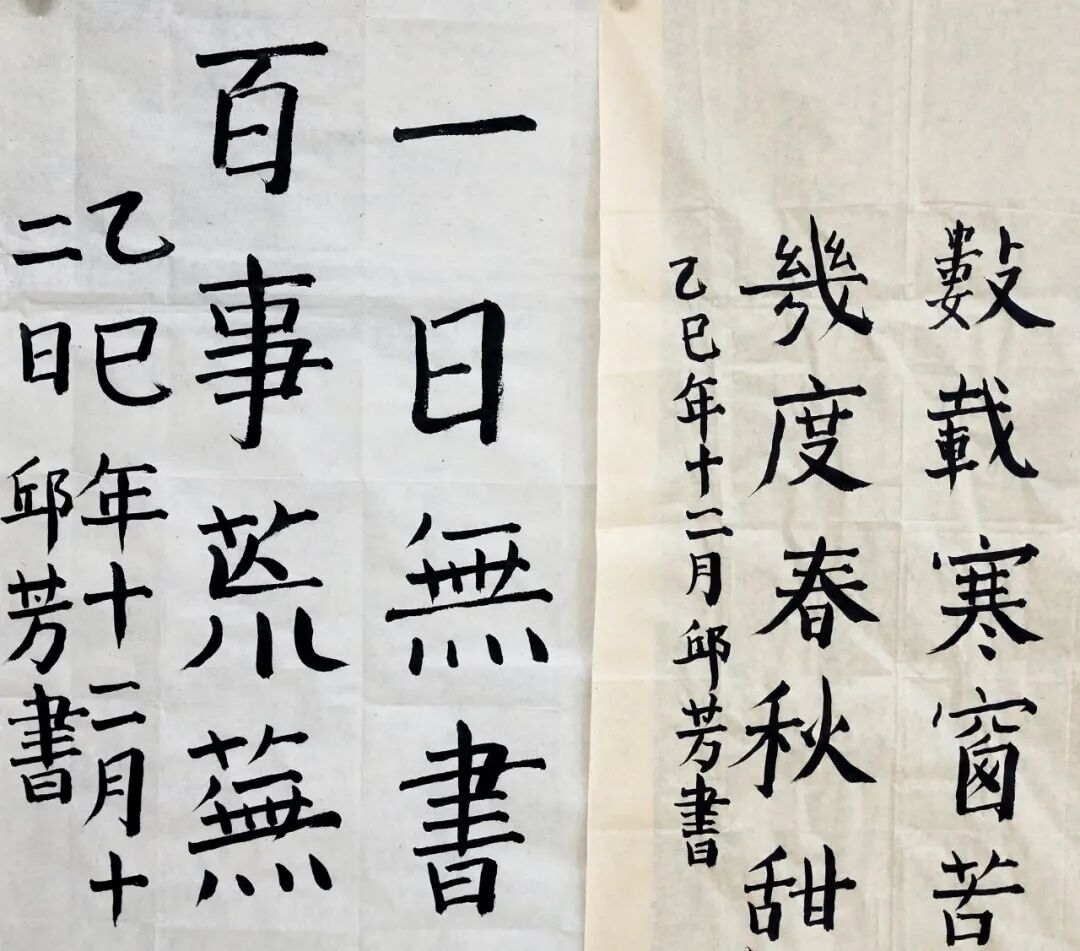 數載寒窗苦
幾度春秋甜
乙巳年十二月邱芳書
一日無書
百事荒蕪
乙巳年十二月十
二日邱芳書